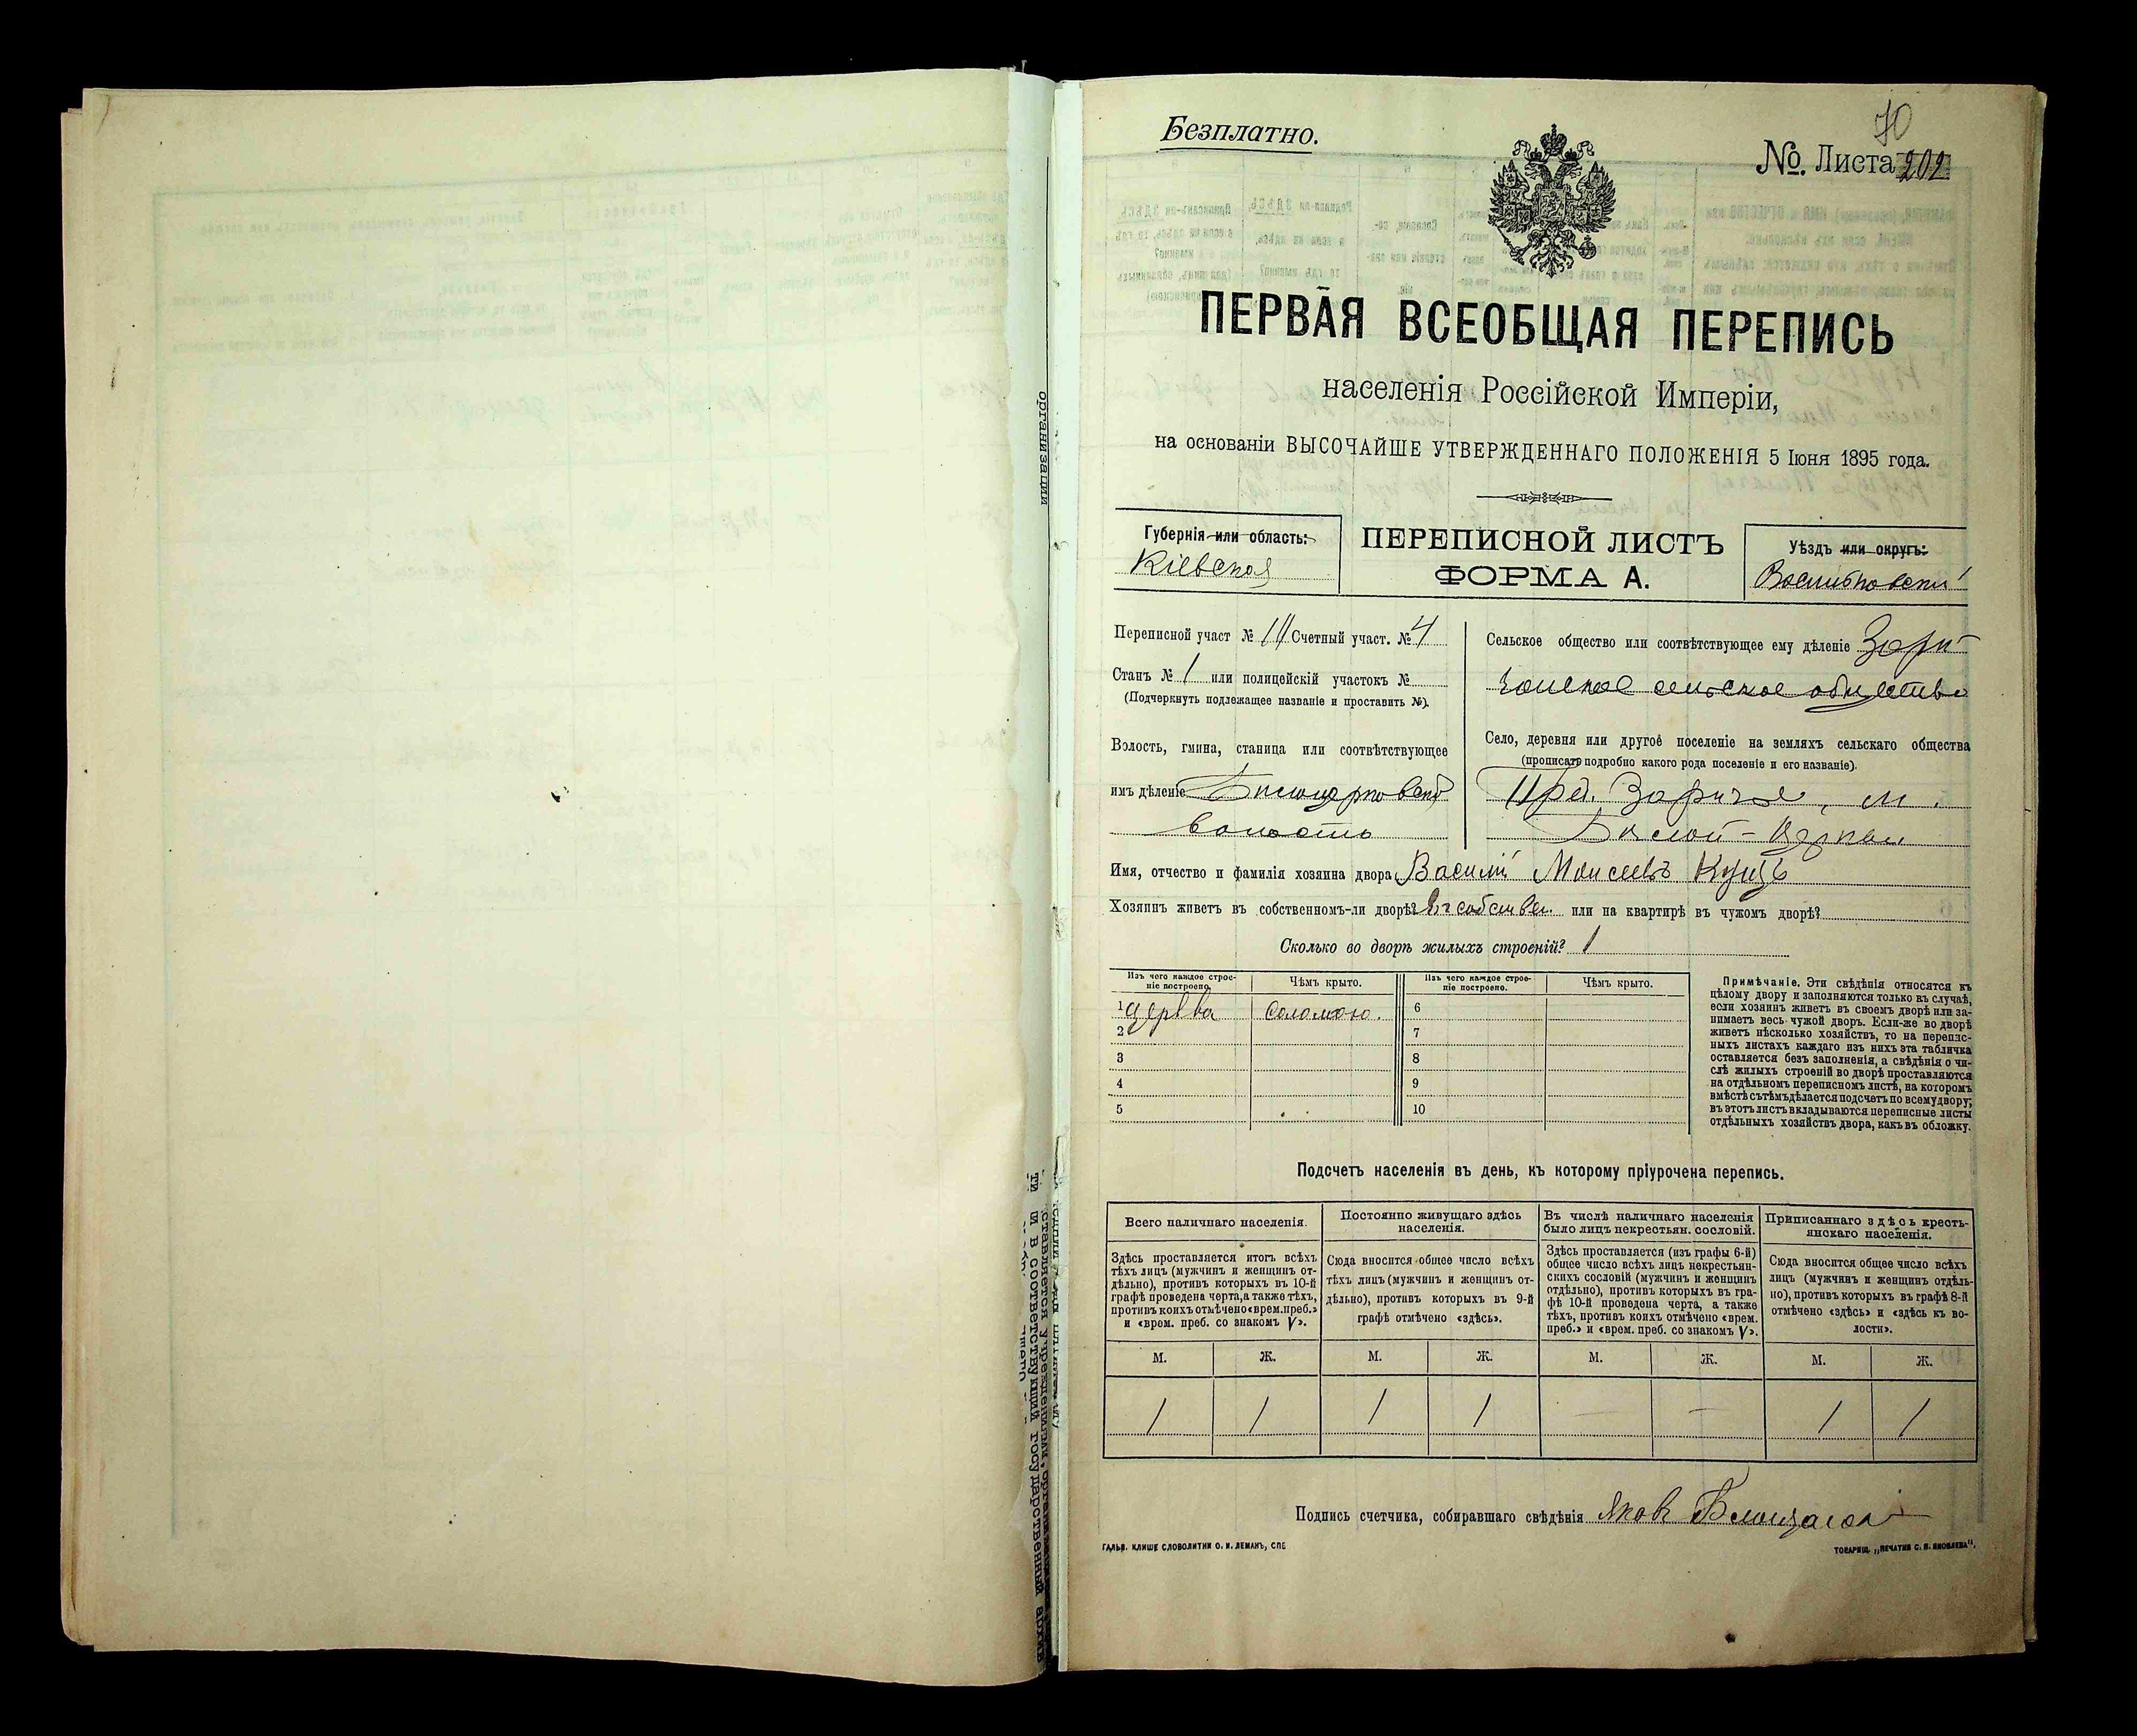 70
Безплатно.
№. Листа 202
ПЕРВАЯ ВСЕОБЩАЯ ПЕРЕПИСЬ
населенія Россійской Имперіи,
на основаніи ВЫСОЧАЙШЕ УТВЕРЖДЕННАГО ПОЛОЖЕНІЯ 5 Іюня 1895 года.
Губернія или область:
Кіевская
ПЕРЕПИСНОЙ ЛИСТЪ
ФОРМА А.
Уѣздъ или округъ:
Васильковскій
Переписной участ № 11 Счетный участ. № 4
Станъ № 1 или полицейскій участокъ №
(Подчеркнуть подлежащее названіе и проставить №).
Волость, гмина, станица или соотвѣтствующее
имъ дѣленіе Бѣлоцерковская
волость
Сельское общество или соотвѣтствующее ему дѣленіе Зари-
чанское сельское общество
Село, деревня или другое поселеніе на земляхъ сельскаго общества
(прописать подробно какого рода поселеніе и его названіе).
Пред. Заричье, м.
Бѣлой-Церкви
Имя, отчество и фамилія хозяина двора Василій Моисеевъ Куцъ
Хозяинъ живетъ въ собственномъ-ли дворѣ? Въ собствен. или на квартирѣ въ чужомъ дворѣ?
Сколько во дворѣ жилыхъ строеній? 1
Изъ чего каждое строе-
ніе построено.
Чѣмъ крыто.
Изъ чего каждое строе-
ніе построено.
Чѣмъ крыто.
1 дерева соломою. 6
2 7
3 8
4 9
5 10
Примѣчаніе. Эти свѣдѣнія относятся къ
цѣлому двору и заполняются только въ случаѣ,
если хозяинъ живетъ въ своемъ дворѣ или за-
нимаетъ весь чужой дворъ. Если-же во дворѣ
живетъ нѣсколько хозяйствъ, то на перепис-
ныхъ листахъ каждаго изъ нихъ эта табличка
оставляется безъ заполненія, а свѣдѣнія о чи-
слѣ жилыхъ строеній во дворѣ проставляются
на отдѣльномъ переписномъ листѣ, на которомъ
вмѣстѣ съ тѣмъ дѣлается подсчетъ по всему двору;
въ этотъ листъ вкладываются переписные листы
отдѣльныхъ хозяйствъ двора, какъ въ обложку.
Подсчетъ населенія въ день, къ которому пріурочена перепись.
Всего наличнаго населенія.
Здѣсь проставляется итогъ всѣхъ
тѣхъ лицъ (мужчинъ и женщинъ от-
дѣльно), противъ которыхъ въ 10-й
графѣ проведена черта, а также тѣхъ,
противъ коихъ отмѣчено «врем. преб.»
и «врем. преб. со знакомъ V».
Постоянно живущаго здѣсь
населенія.
Сюда вносится общее число всѣхъ
тѣхъ лицъ (мужчинъ и женщинъ от-
дѣльно), противъ которыхъ въ 9-й
графѣ отмѣчено «здѣсь».
Въ числѣ наличнаго населенія
было лицъ некрестьян. сословій.
Здѣсь проставляется (изъ графы 6-й)
общее число всѣхъ лицъ некрестьян-
скихъ сословій (мужчинъ и женщинъ
отдѣльно), противъ которыхъ въ гра-
фѣ 10-й проведена черта, а также
тѣхъ, противъ коихъ отмѣчено «врем.
преб.» и «врем. преб. со знакомъ V».
Приписаннаго здѣсь кресть-
янскаго населенія.
Сюда вносится общее число всѣхъ
лицъ (мужчинъ и женщинъ отдѣль-
но), противъ которыхъ въ графѣ 8-й
отмѣчено «здѣсь» и «здѣсь къ во-
лости».
М. Ж. М. Ж. М. Ж. М. Ж.
1 1 1 1 — — 1 1
Подпись счетчика, собиравшаго свѣдѣнія Яковъ
ГАЛЬВ. КЛИШЕ СЛОВОЛИТНИ О. И. ЛЕМАНЪ, СПБ
ТОВАРИЩ. „ПЕЧАТНЯ С. П. ЯКОВЛЕВА".
организации